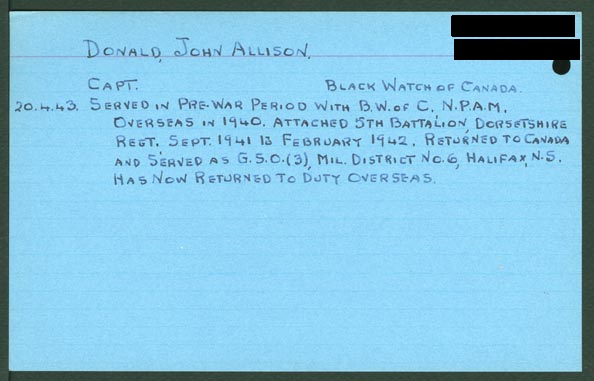 DONALD, JOHN ALLISON.
CAPT. BLACK WATCH OF CANADA.
20.4.43. SERVED IN PRE-WAR PERIOD WITH B.W. OF C., N.P.A.M.
OVERSEAS IN 1940. ATTACHED 5TH BATTALION, DORSETSHIRE
REGT. SEPT. 1941 TO FEBRUARY 1942. RETURNED TO CANADA
AND SERVED AS G.S.O.(3), MIL. DISTRICT NO. 6, HALIFAX, N.S.
HAS NOW RETURNED TO DUTY OVERSEAS.